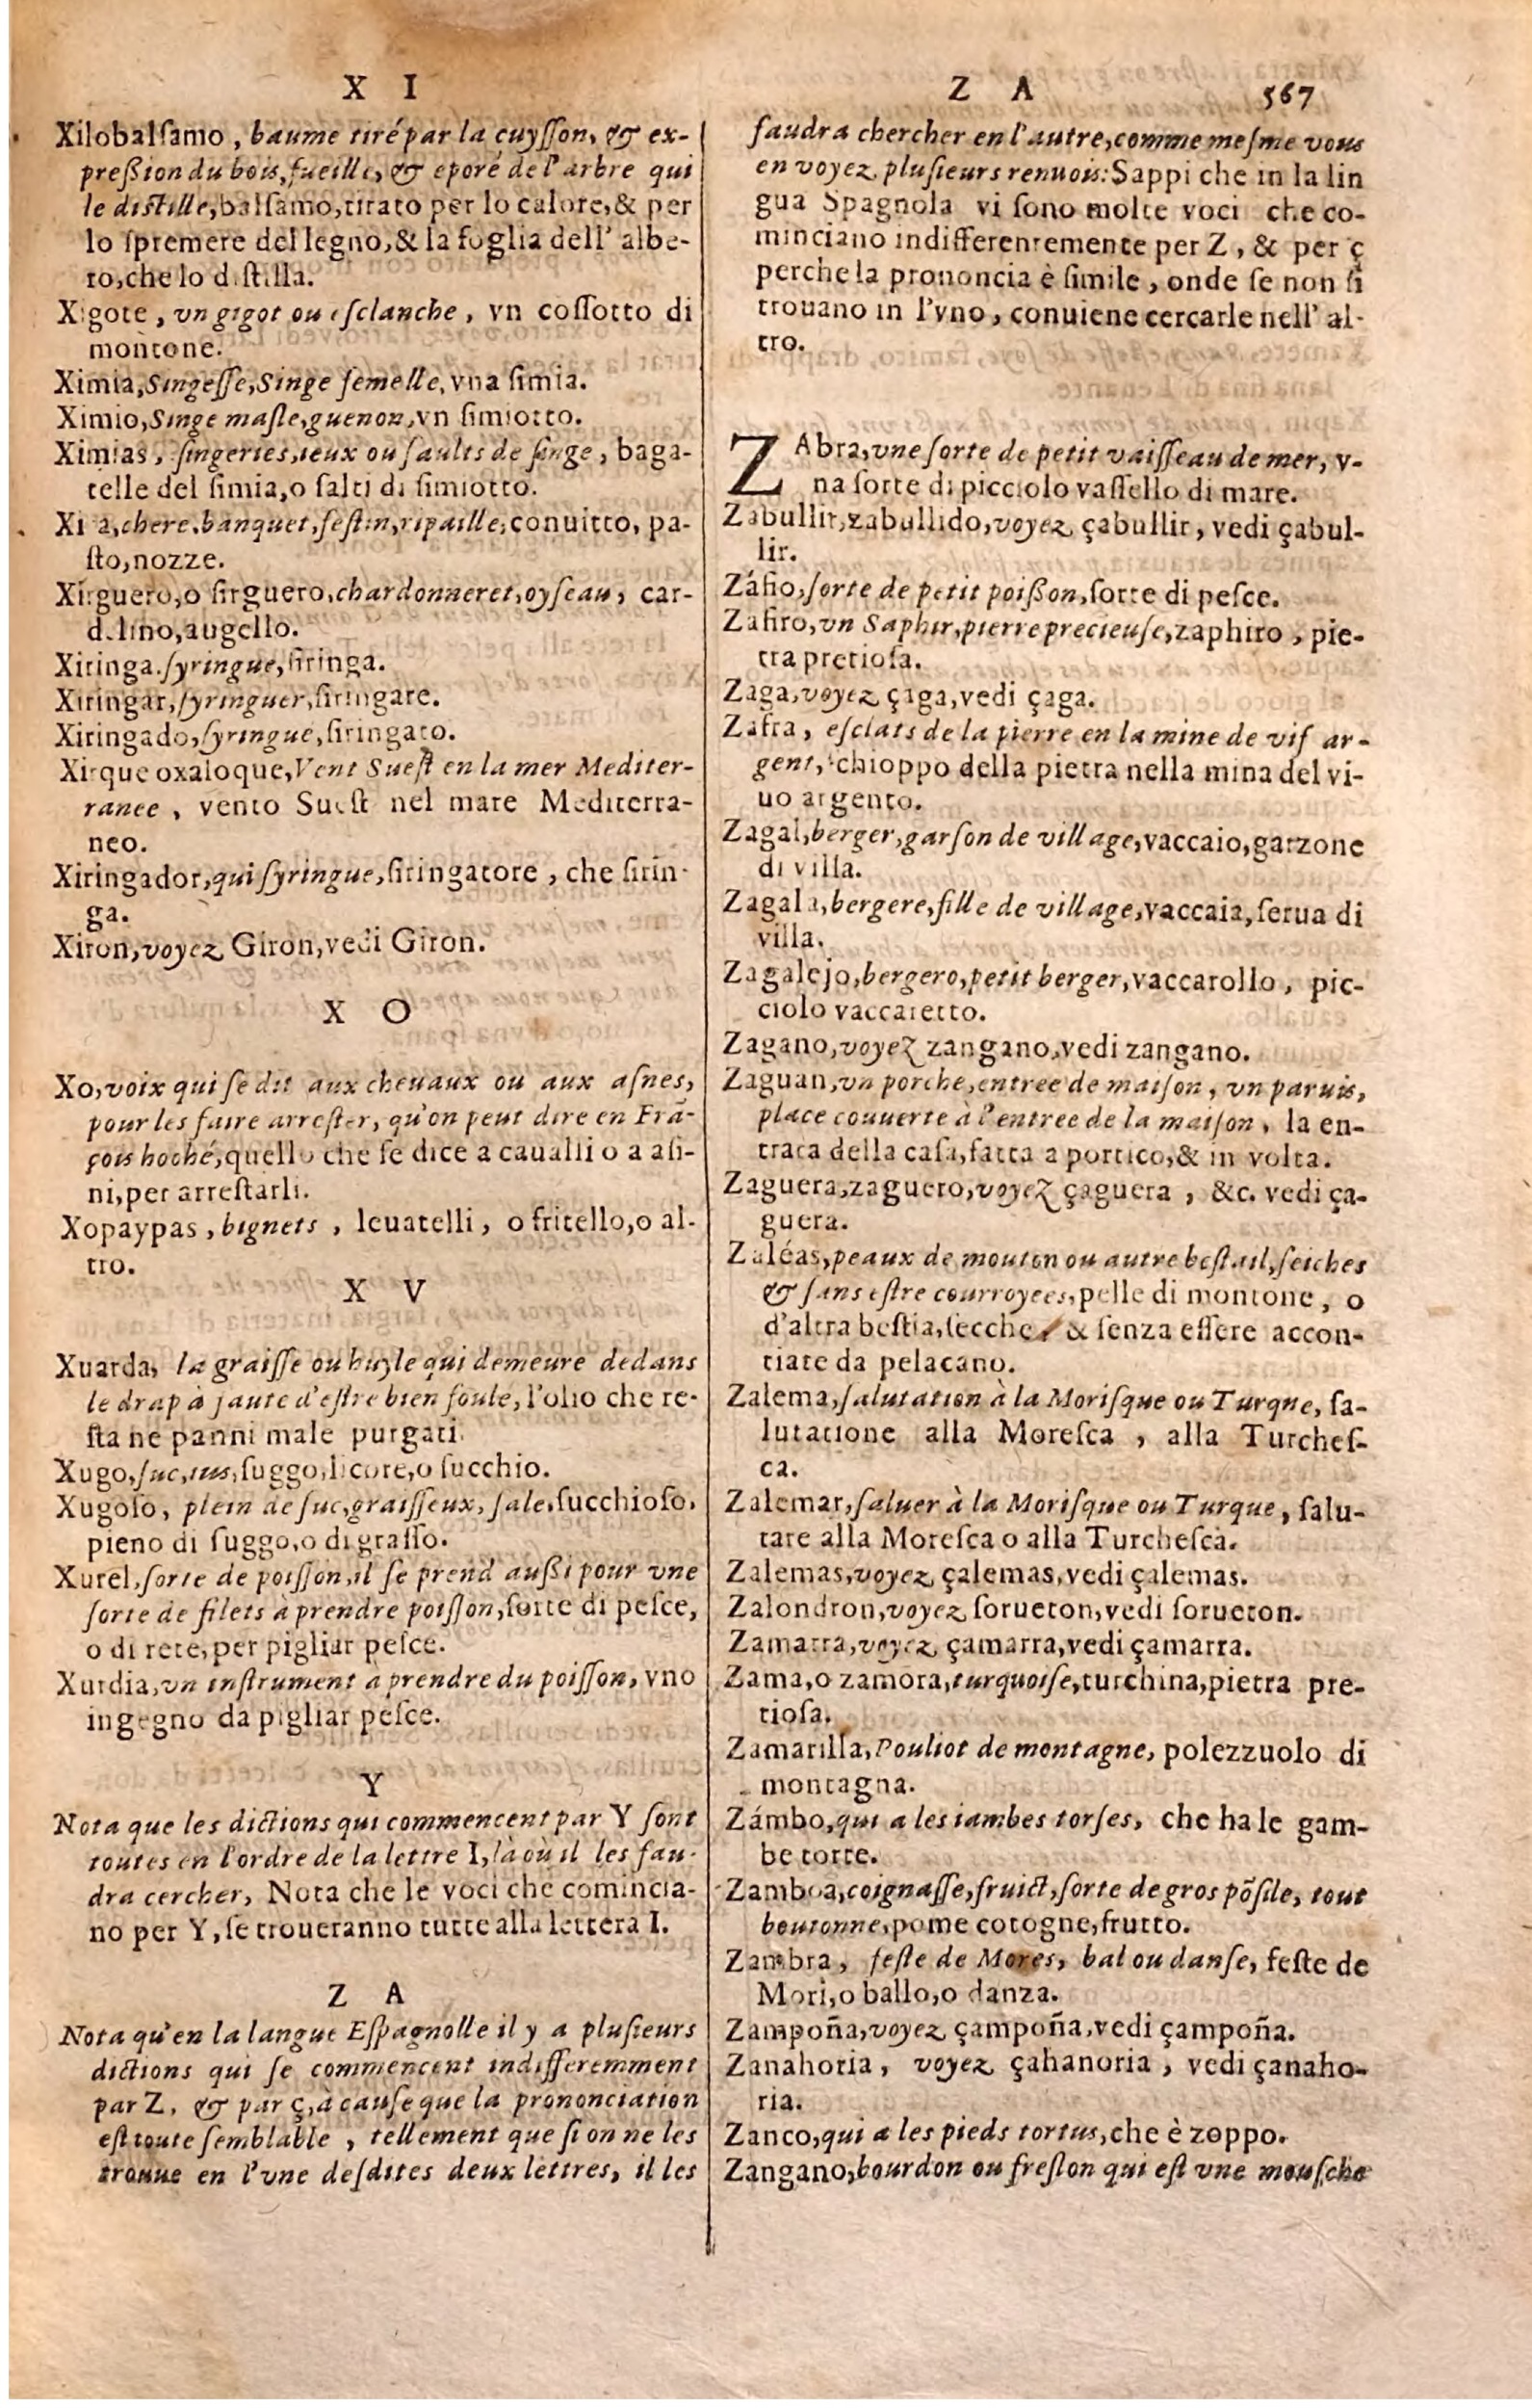 X I
Xilobalſamo, baume tiré par la cuyſſon, & ex-
preßion du bois, fueille, & eporé de l'arbre qui
le diſtille, balſamo, tirato per lo calore, & per
lo ſpremere del legno, & la foglia dell' albe-
ro, che lo diſtilla.
Xigote, vn gigot ou eſclanche, vn coſſotto di
montone.
Ximia, Singeſſe, Singe femelle, vna ſimia.
Ximio, Singe maſle, guenon, vn ſimiotto.
Ximias, ſingeries, ieux ou ſaults de ſinge, baga-
telle del ſimia, o ſalti di ſimiotto.
Xi a, chere, banquet, feſtin, ripaille, conuitto, pa-
ſto, nozze.
Xirguero, o ſirguero, chardonneret, oyſeau, car-
delino, augello.
Xiringa. ſyringue, ſiringa.
Xiringar, ſyringuer, ſiringare.
Xiringado, ſyringue, ſiringato.
Xirque oxaloque, Vent Sueſt en la mer Mediter-
ranee, vento Sueſt nel mare Mediterra-
neo.
Xiringador, qui ſyringue, ſiringatore, che ſirin-
ga.
Xiron, voyez Giron, vedi Giron.
X O
Xo, voix qui ſe dit aux cheuaux ou aux aſnes,
pour les faire arreſter, qu'on peut dire en Frã-
çois hoché, quello che ſe dice a caualli o a aſi-
ni, per arreſtarli.
Xopaypas, bignets, leuatelli, o fritello, o al-
tro.
X V
Xuarda, la graiſſe ou huyle qui demeure dedans
le drap à faute d'eſtre bien foule, l'olio che re-
ſta ne panni male purgati.
Xugo, ſuc, ius, ſuggo, licore, o ſucchio.
Xugoſo, plein de ſuc, graiſſeux, ſale, ſucchioſo,
pieno di ſuggo, o di graſſo.
Xurel, ſorte de poiſſon, il ſe prend außi pour vne
ſorte de filets à prendre poiſſon, ſorte di peſce,
o di rete, per pigliar peſce.
Xurdia, vn inſtrument a prendre du poiſſon, vno
ingegno da pigliar peſce.
Y
Nota que les dictions qui commencent par Y ſont
toutes en l'ordre de la lettre I, là où il les fau-
dra cercher, Nota che le voci che comincia-
no per Y, ſe troueranno tutte alla lettera I.
Z A
Nota qu'en la langue Eſpagnolle il y a pluſieurs
dictions qui ſe commencent indifferemment
par Z, & par ç, à cauſe que la prononciation
eſt toute ſemblable, tellement que ſi on ne les
trouue en l'vne deſdites deux lettres, il les
Z A 567
faudra chercher en l'autre, comme meſme vous
en voyez pluſieurs renuois: Sappi che in la lin
gua Spagnola vi ſono molte voci che co-
minciano indifferentemente per Z, & per ç
perche la prononcia è ſimile, onde ſe non ſi
trouano in l'vno, conuiene cercarle nell' al-
tro.
ZAbra, vne ſorte de petit vaiſſeau de mer, v-
na ſorte di picciolo vaſſello di mare.
Zabullir, zabullido, voyez çabullir, vedi çabul-
lir.
Záfio, ſorte de petit poißon, ſorte di peſce.
Zafiro, vn Saphir, pierre precieuſe, zaphiro, pie-
tra pretioſa.
Zaga, voyez çaga, vedi çaga.
Zafra, eſclats de la pierre en la mine de vif ar-
gent, ſchioppo della pietra nella mina del vi-
uo argento.
Zagal, berger, garſon de village, vaccaio, garzone
di villa.
Zagala, bergere, fille de village, vaccaia, ſerua di
villa.
Zagalejo, bergero, petit berger, vaccarollo, pic-
ciolo vaccaretto.
Zagano, voyez zangano, vedi zangano.
Zaguan, vn porche, entree de maiſon, vn paruis,
place couuerte à l'entree de la maiſon, la en-
trata della caſa, fatta a portico, & in volta.
Zaguera, zaguero, voyez çaguera, &c. vedi ça-
guera.
Zaléas, peaux de mouton ou autre beſtail, ſeiches
& ſans eſtre courroyees, pelle di montone, o
d'altra beſtia, ſecche, & ſenza eſſere accon-
tiate da pelacano.
Zalema, ſalutation à la Moriſque ou Turqne, ſa-
lutatione alla Moreſca, alla Turcheſ-
ca.
Zalemar, ſaluer à la Moriſque ou Turque, ſalu-
tare alla Moreſca o alla Turcheſca.
Zalemas, voyez çalemas, vedi çalemas.
Zalondron, voyez ſorueton, vedi ſorueton.
Zamarra, voyez çamarra, vedi çamarra.
Zama, o zamora, turquoiſe, turchina, pietra pre-
tioſa.
Zamarilla, Pouliot de montagne, polezzuolo di
montagna.
Zámbo, qui a les iambes torſes, che ha le gam-
be torte.
Zamboa, coignaſſe, fruict, ſorte de gros põſile, tout
boutonne, pome cotogne, frutto.
Zambra, feſte de Mores, bal ou danſe, feſte de
Mori, o ballo, o danza.
Zampoña, voyez çampoña, vedi çampoña.
Zanahoria, voyez çahanoria, vedi çanaho-
ria.
Zanco, qui a les pieds tortus, che è zoppo.
Zangano, bourdon ou freſlon qui eſt vne mouſche